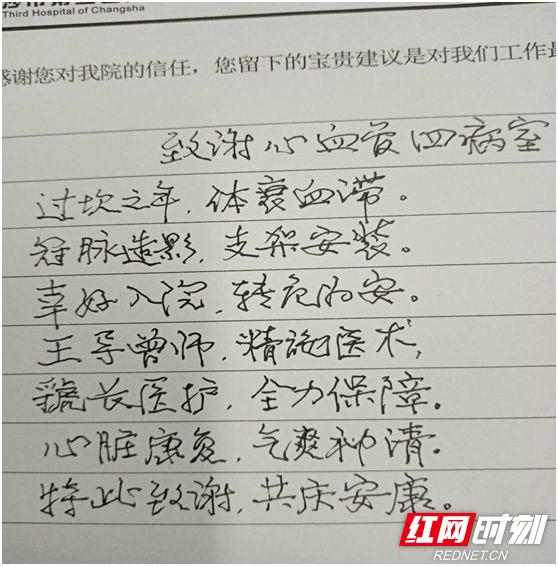 Third Hospital of Changsha
感谢您对我院的信任，您留下的宝贵建议是对我们工作最
致谢心血管四病室
过坎之年，体衰血滞。
冠脉造影，支架安装。
幸好入院，转危为安。
王导曾师，精施医术，
虢长医护，全力保障。
心脏康复，气爽神清。
特此致谢，共庆安康。
红网时刻
REDNET.CN